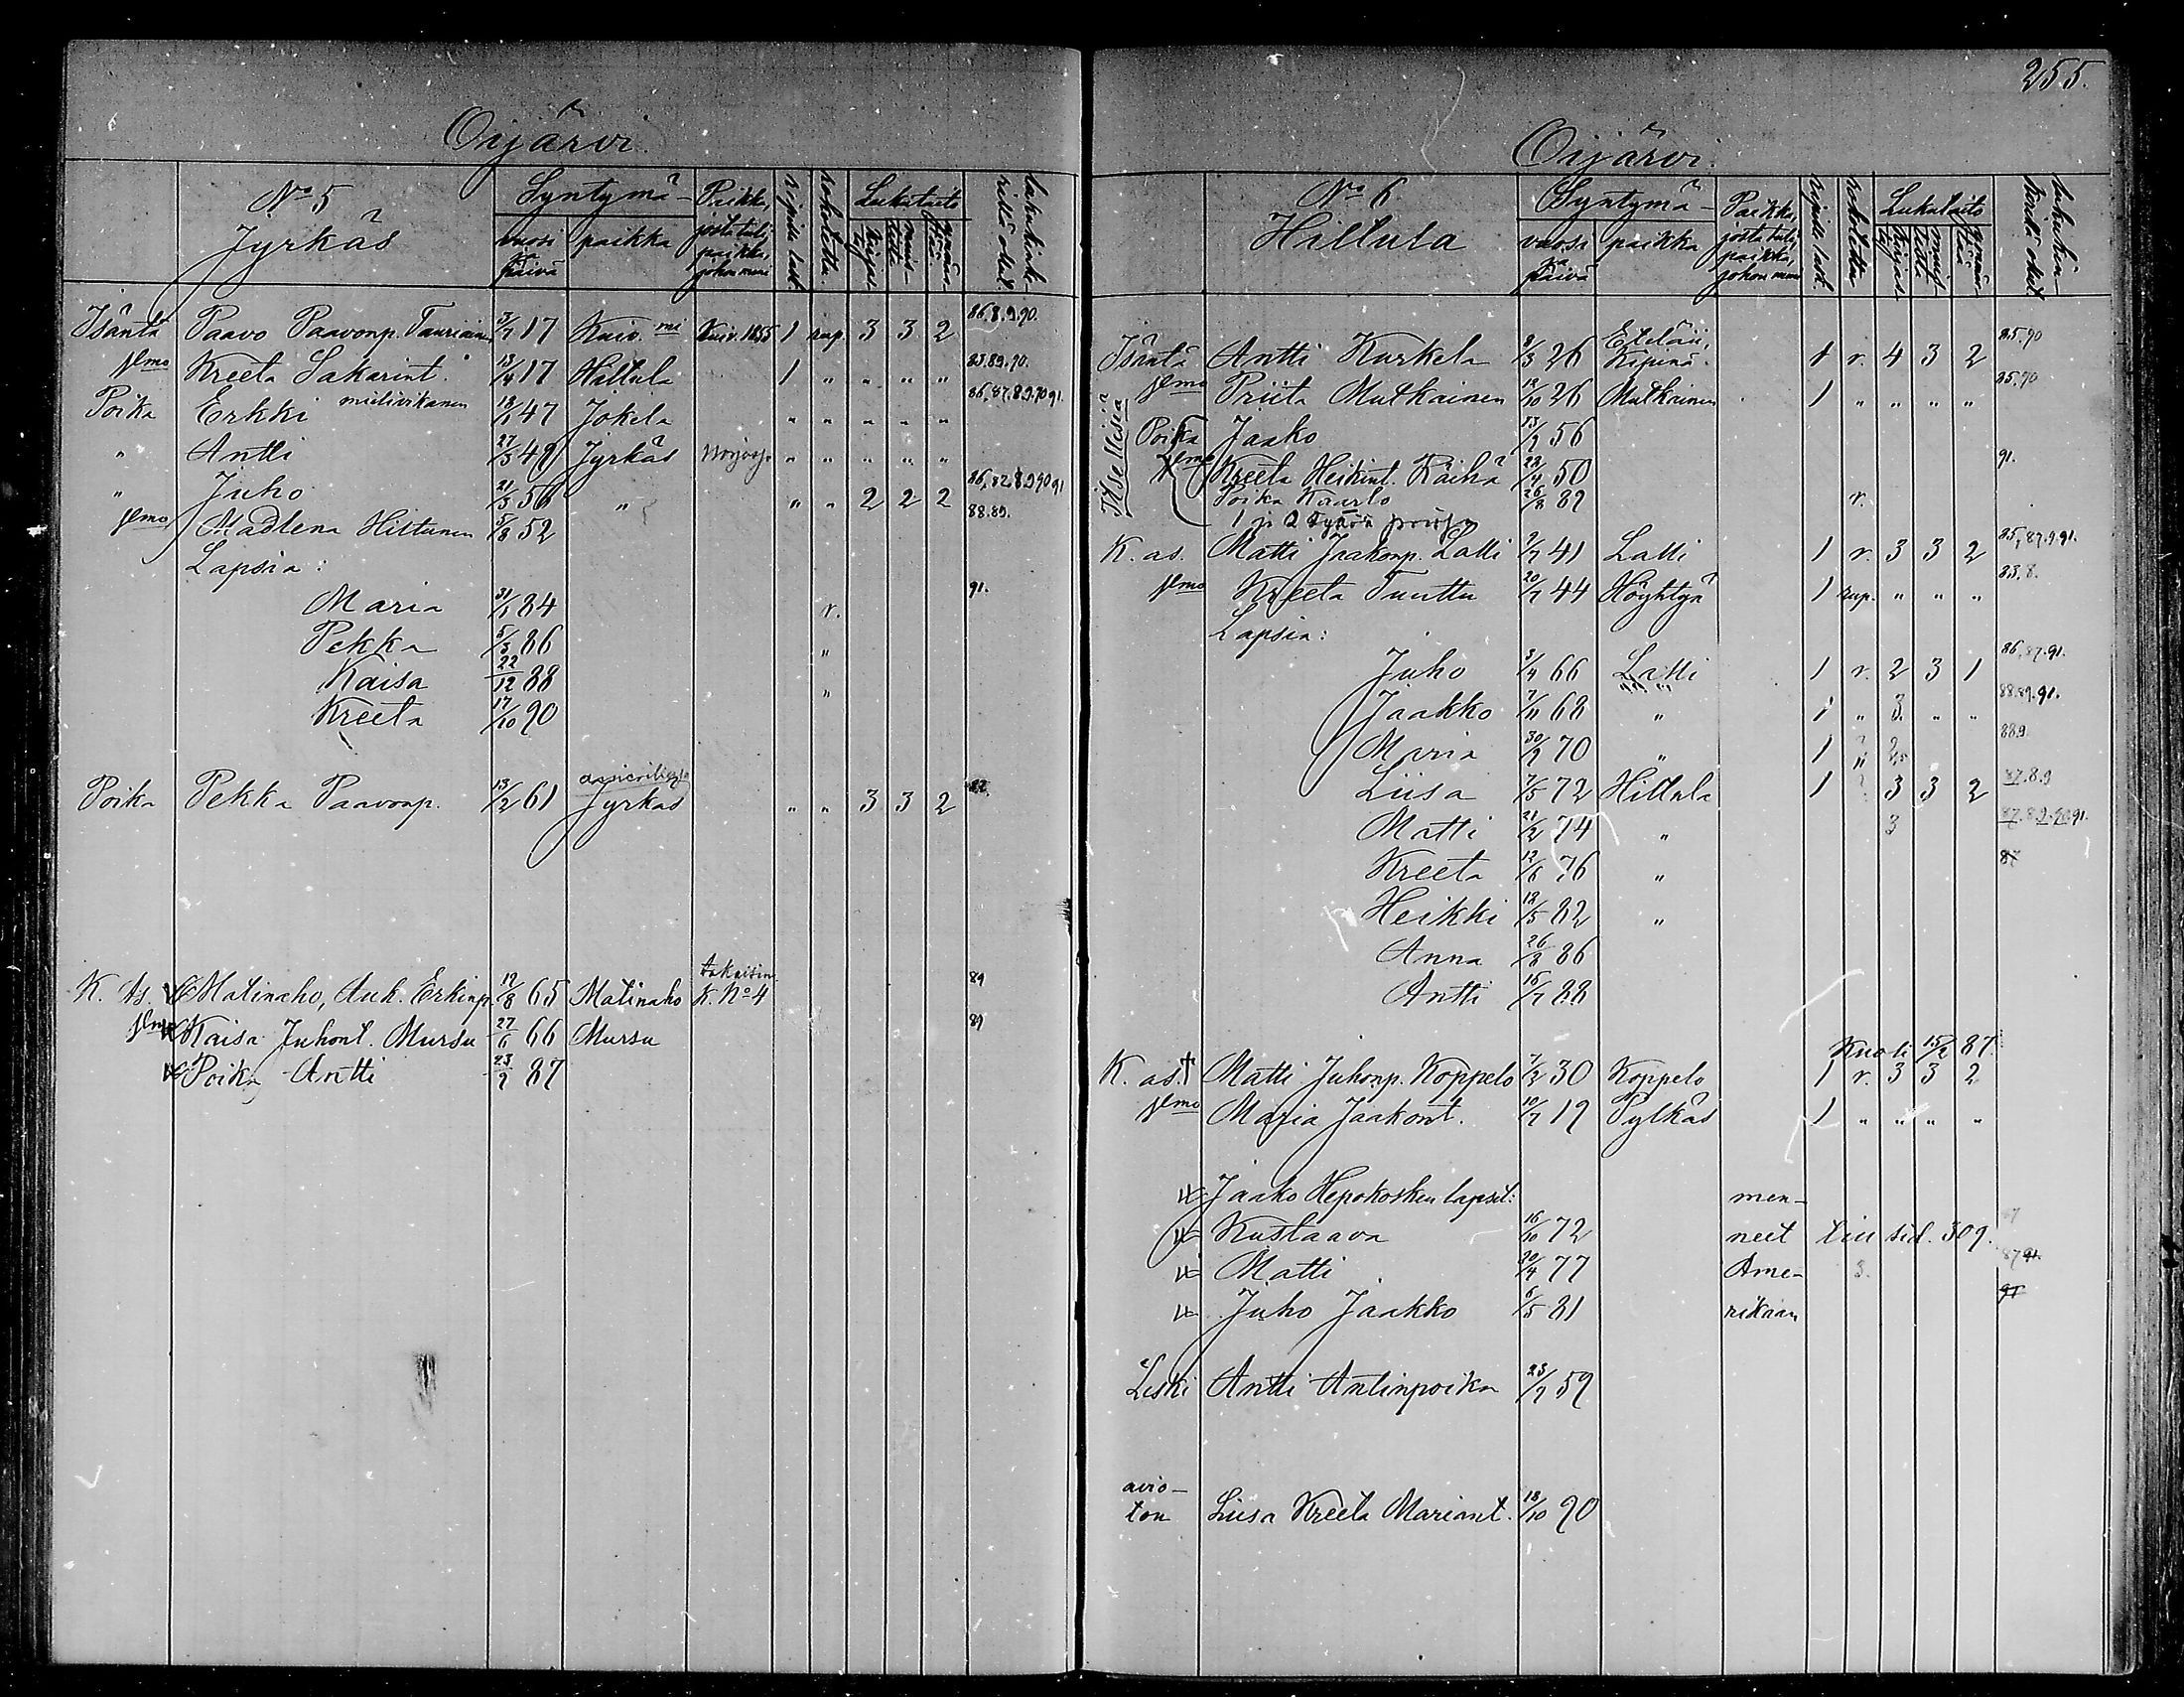 255.
Oijärvi.
No 5
Jyrkäs
Syntymä-
vuosi ja päivä
paikka
Paikka, josta tuli, paikka, johon muni
ripille lask.
rokotettu.
Lukutaito
kirjas
muis-
Isäntä Paavo Paavonp. 3/7 17 Kuiv. mi Kuiv. 1855 1 rup. 3 3 2 86,8.9.90.
Vmo Kreeta Sakarint. 13/4 17 Hiltula 1 " " " " 83,89.90.
Poika Erkki mielivikanen 18/1 47 Jokela " " " " " 86,87.8.9.90 91.
" Antti 27/5 49 Jyrkäs " " " " "
" Juho 21/3 56 " " " 2 2 2
Vmo Madlena Hiltunen 5/8 52 88.89.
Lapsia:
Maria 31/1 84 r. 91.
Pekka 5/3 86 "
Kaisa 22/12 88 "
Kreeta 17/10 90
Poika Pekka Paavonp. 13/2 61 Jyrkäs " " 3 3 2
takaisin
K. As. Matinaho, Auk. Erkinp. 12/8 65 Matinaho K. No 4 89
Vmo Kaisa Juhont. Mursu 27/6 66 Mursu 89
Poika Antti 23/9 87
Oijärvi.
No 6.
Hiltula
Syntymä-
vuosi ja päivä
paikka
Paikka, josta tuli, paikka, johon muni
ripille lask.
rokotettu
Lukutaito
kirjas
Isäntä Antti Kurkela 8/3 26 Kipinä. 1 r. 4 3 2 85.90
Vmo Priita Mutkainen 12/10 26 Mutkainen 1 " " " " 85.90
Itsellisiä
Poika Jaako 13/2 56
Vmo Kreeta Heikint. Räihä 22/4 50 91.
Poika Kaarlo 26/8 82 r.
K. as. Matti Jaakonp. Latti 2/7 41 Latti 1 r. 3 3 2 85,87.9.91.
Vmo Kreeta Tuuttu 20/7 44 Höyhtyä 1 rup. " " " 83,8.
Lapsia:
Juho 3/4 66 Latti 1 r. 2 3 1 86,87.91.
Jaakko 7/11 68 " 1 " 3. " " 88.89.91.
Maria 30/9 70 " 1 88.9.
Liisa 7/5 72 Hiltula 1 3 3 2 87.8.9
Matti 21/2 74 " 3 87.8.9.90 91.
Kreeta 12/6 76 " 87
Heikki 12/5 82 "
Anna 26/8 86
Antti 15/7 88
Kuoli 15/2 87.
K. as. † Matti Juhonp. Koppelo 7/2 30 Koppelo 1 r. 3 3 2
Vmo Maria Jaakont. 10/7 19 Pylkäs 1 " " " "
Jaako Hepokosken lapset: men-
Kustaava 16/10 72 neet siv. 309.
Matti 20/4 77 Ame- 3. 87 91.
Juho Jaakko 6/5 81 rikaan 91
Leski Antti Antinpoika 23/9 59
avio-
ton Liisa Kreeta Mariant. 18/10 90